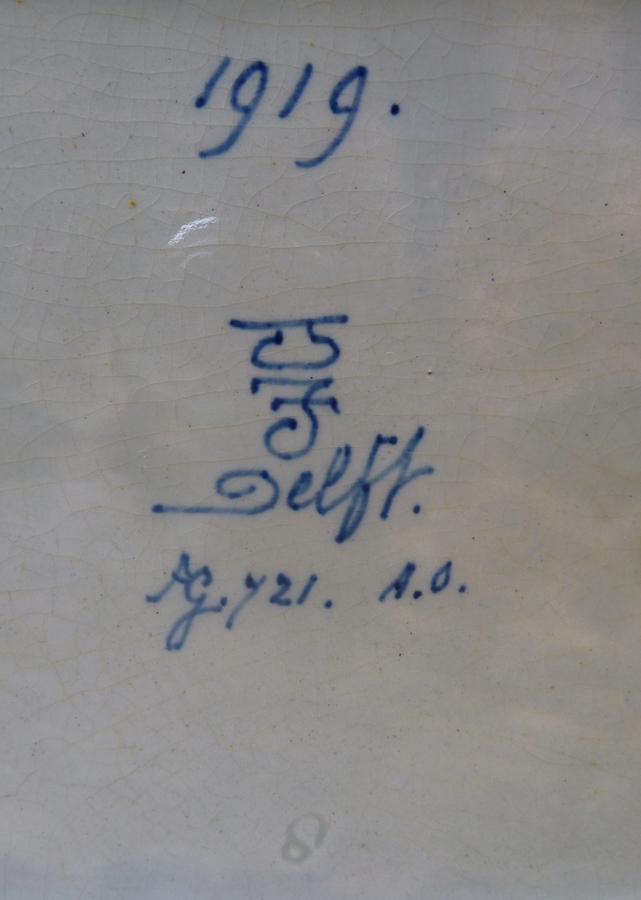 1919.
Delft.
AG.721. A.O.
8